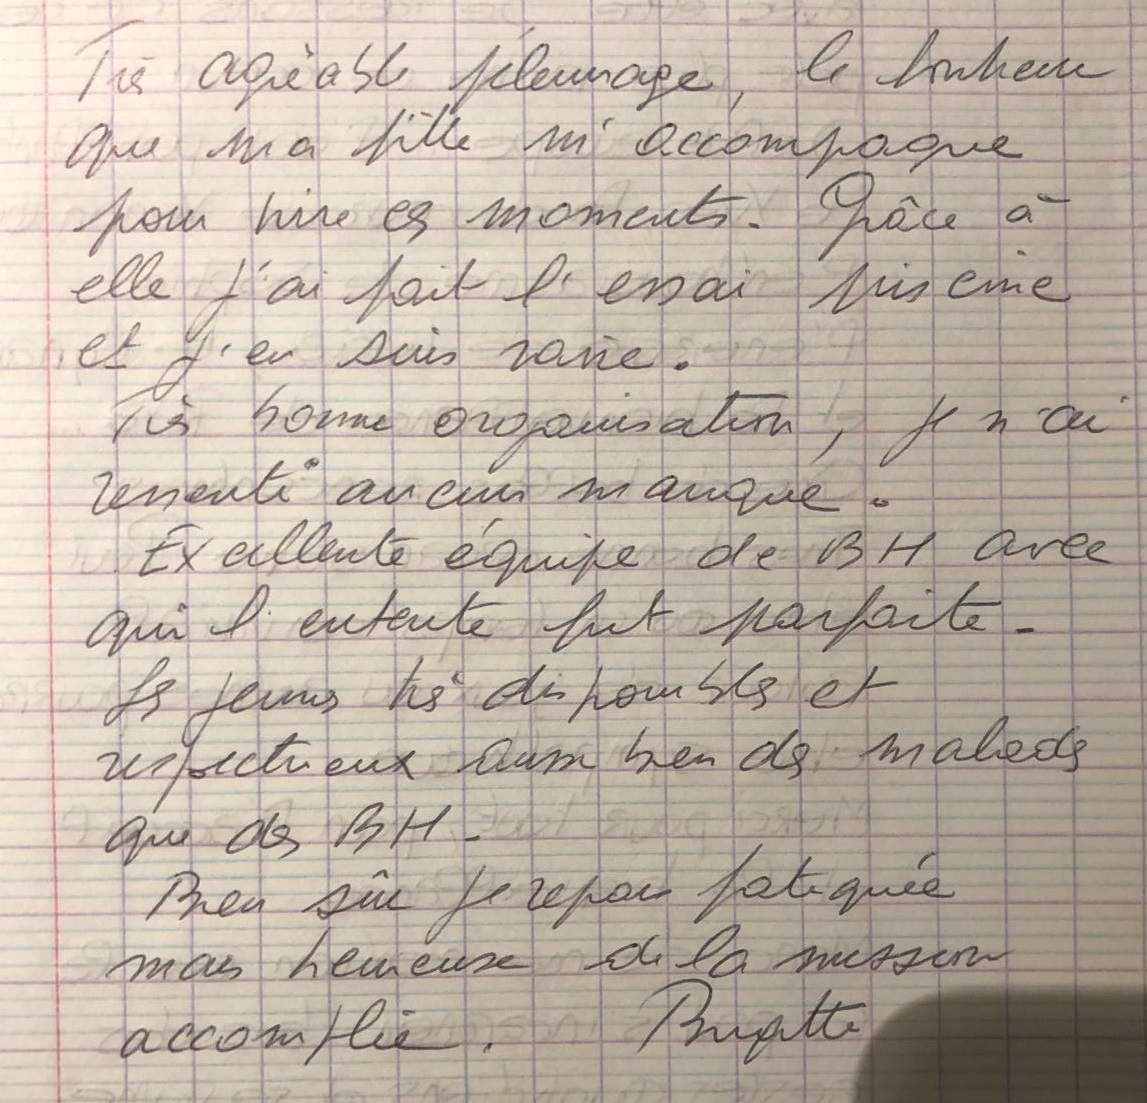 Très agréable pélerinage, le bonheur
que ma fille m'accompagne
pour vivre ces moments. Grâce à
elle j'ai fait l'essai piscine
et j'en suis ravie.
Très bonne organisation, je n'ai
ressenti aucun manque.
Excellente équipe de BH avec
qui l'entente fut parfaite -
Les jeunes très disponibles et
respectueux aussi bien des malades
que des BH -
Bien sûr je repars fatiguée
mais heureuse de la mission
accomplie. Brigitte